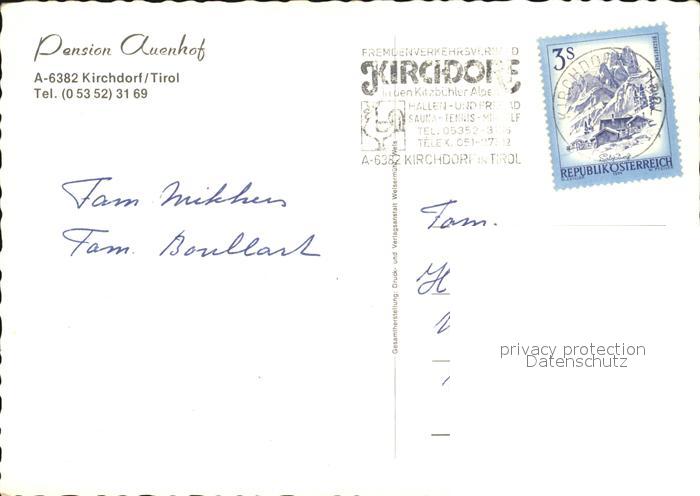 Pension Auenhof
A-6382 Kirchdorf/Tirol
Tel. (0 53 52) 31 69
FREMDENVERKEHRSVERBAND
KIRCHDORF
in den Kitzbühler Alpen
HALLEN- UND FREIBAD
SAUNA - TENNIS -
TEL. 05352-
TELEX.
A-6382 KIRCHDORF IN TIROL
3 S
REPUBLIK ÖSTERREICH
KIRCHDORF
Fam
Fam. Boullart
Fam.
H
Gesamtherstellung: Druck- und Verlagsanstalt Welsermühl, Wels
privacy protection
Datenschutz